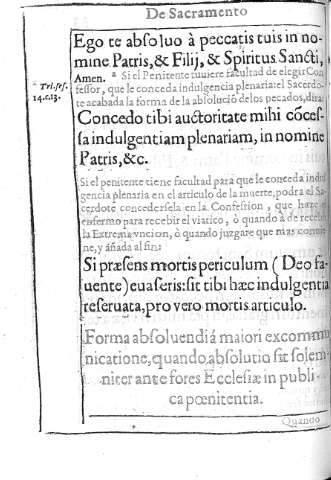 De Sacramento
Ego te absoluo à peccatis tuis in no-
mine Patris, & Filij, & Spiritus Sancti,
Amen. ª Si el Penitente tuuiere facultad de elegir Con
fessor, que le conceda indulgencia plenaria: el Sacerdo-
te acabada la forma de la absoluciõ de los pecados, dirá:
* Tri. ses.
14. c. 13.
Concedo tibi auctoritate mihi cõces-
sa indulgentiam plenariam, in nomine
Patris, &c.
Si el penitente tiene facultad para que le conceda indul
gencia plenaria en el articulo de la muerte, podra el Sa-
cerdote concedersela en la Confession, que haze el
enfermo para recebir el viatico, ò quando à de recebir
la Extrema vncion, ò quando juzgare que mas conuie
ne, y añada al fin:
Si præsens mortis periculum (Deo fa-
uente) euaseris: sit tibi hæc indulgentia
reseruata, pro vero mortis articulo.
Forma absoluendi á maiori excommu
nicatione, quando, absolutio sit solem-
niter ante fores Ecclesiæ in publi-
ca pœnitentia.
Quando